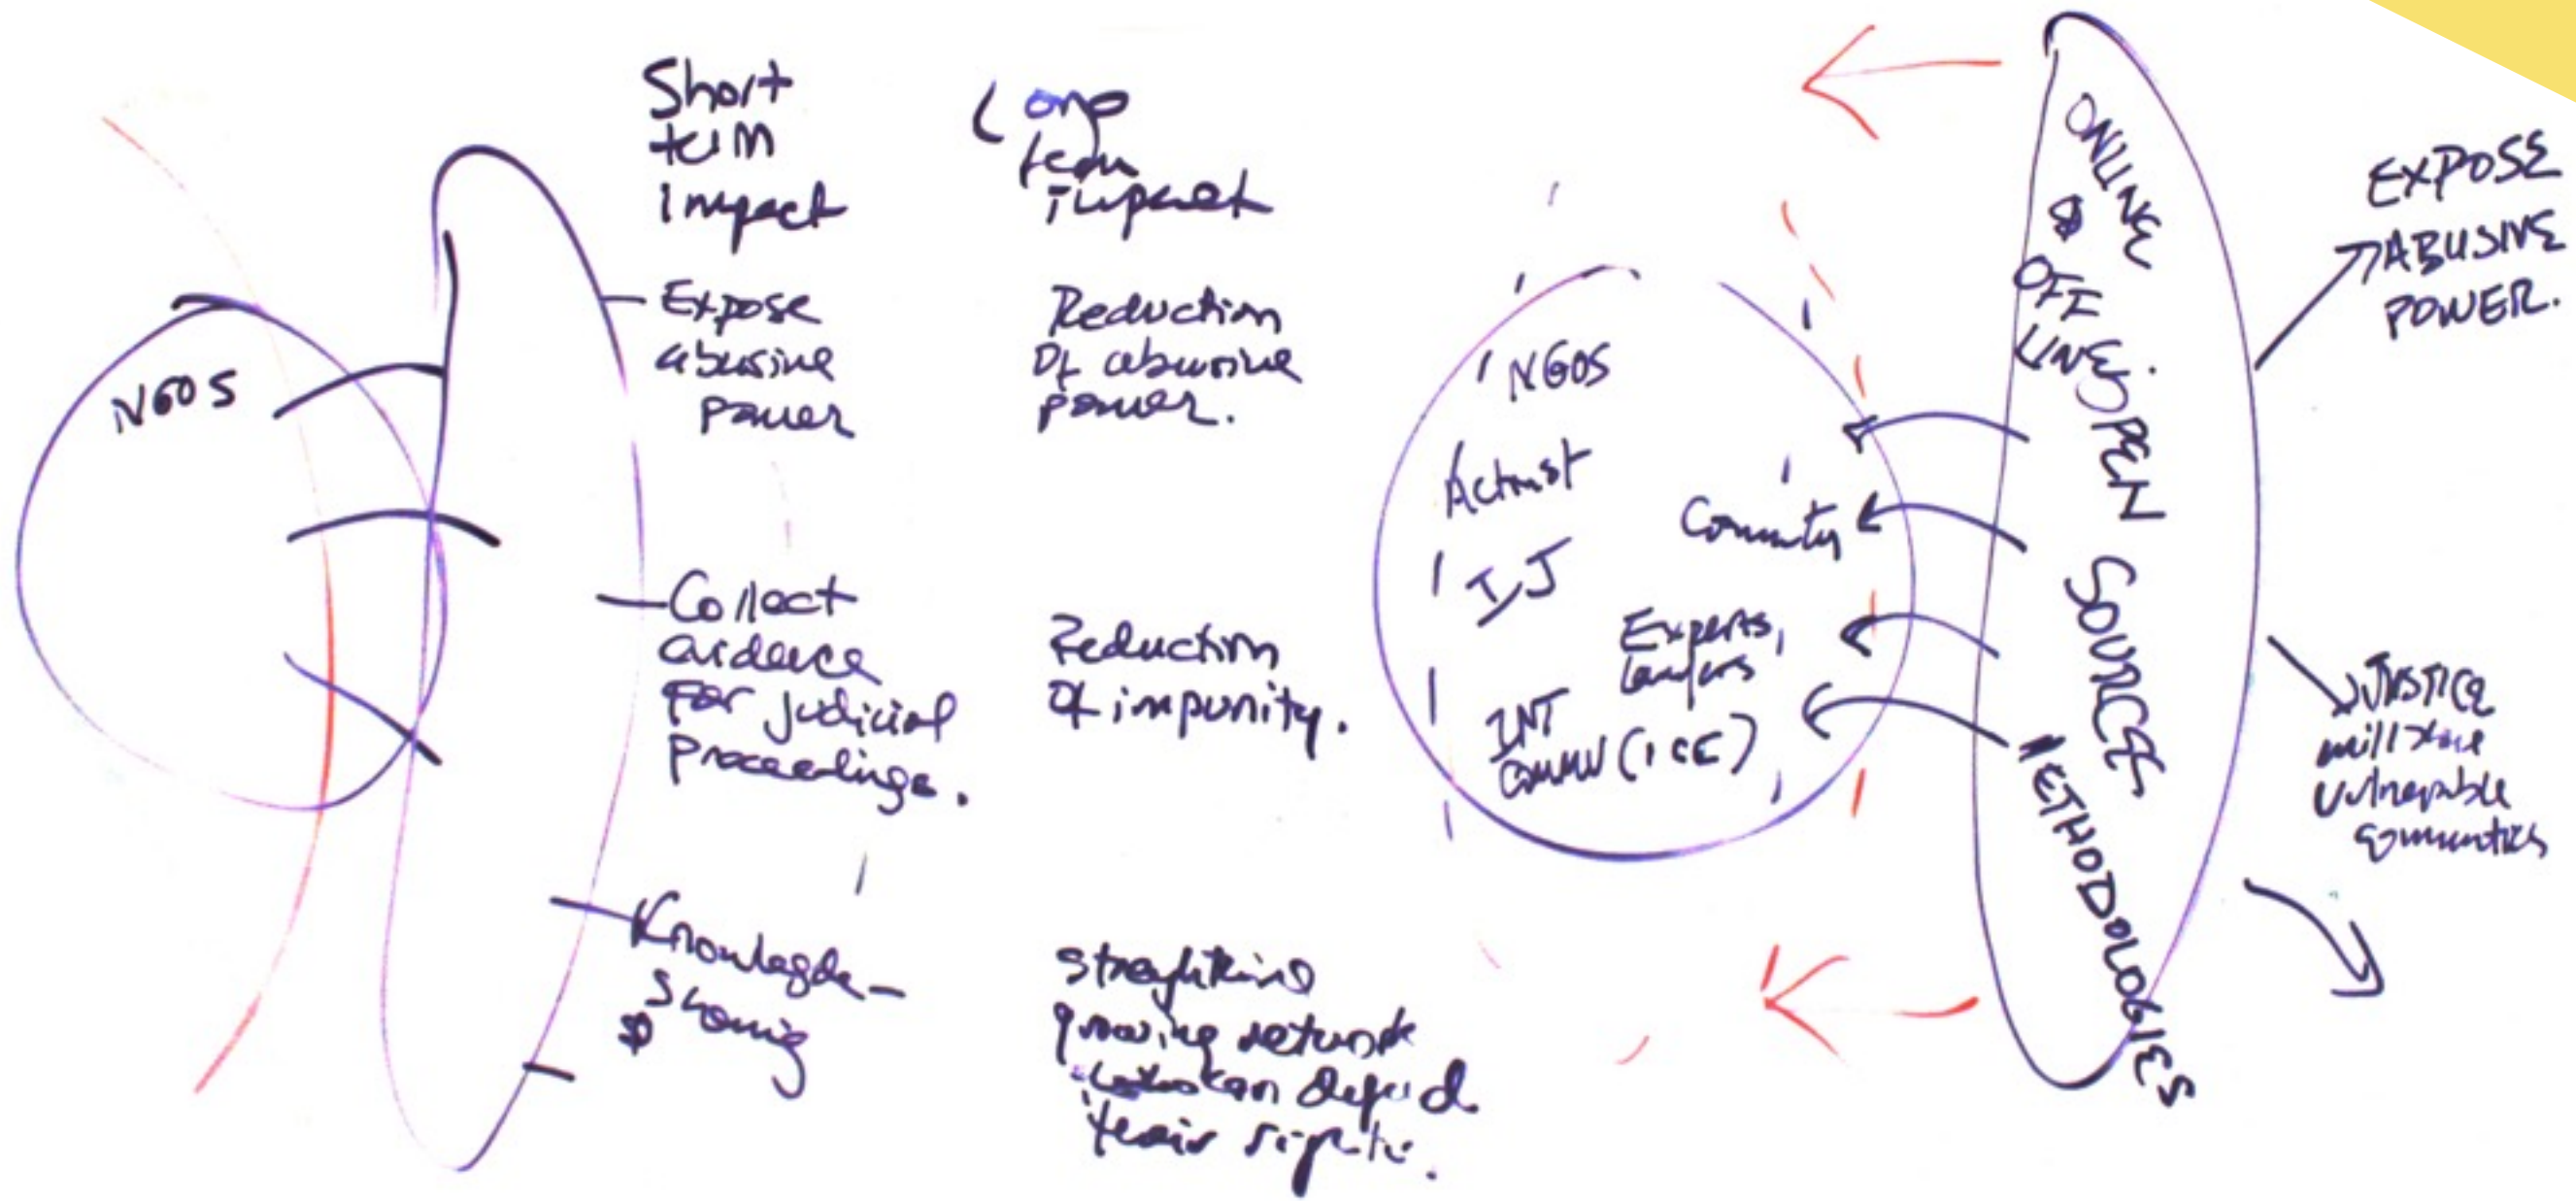 Short
term
Impact
Long
term
impact
NGOS
Expose
abusive
power
Reduction
Of abusive
power.
Collect
evidence
For judicial
Proceedings.
Reduction
Of impunity.
Knowlagde-
& Sharing
growing network
can defend
their rights.
NGOS
Activist
IJ
Community
Experts,
Lawyers
INT
COMMU (ICE)
ONLINE
&
OFF
LINE
OPEN
SOURCES
METHODOLOGIES
EXPOSE
ABUSIVE
POWER.
JUSTICE
vulnerable
communities